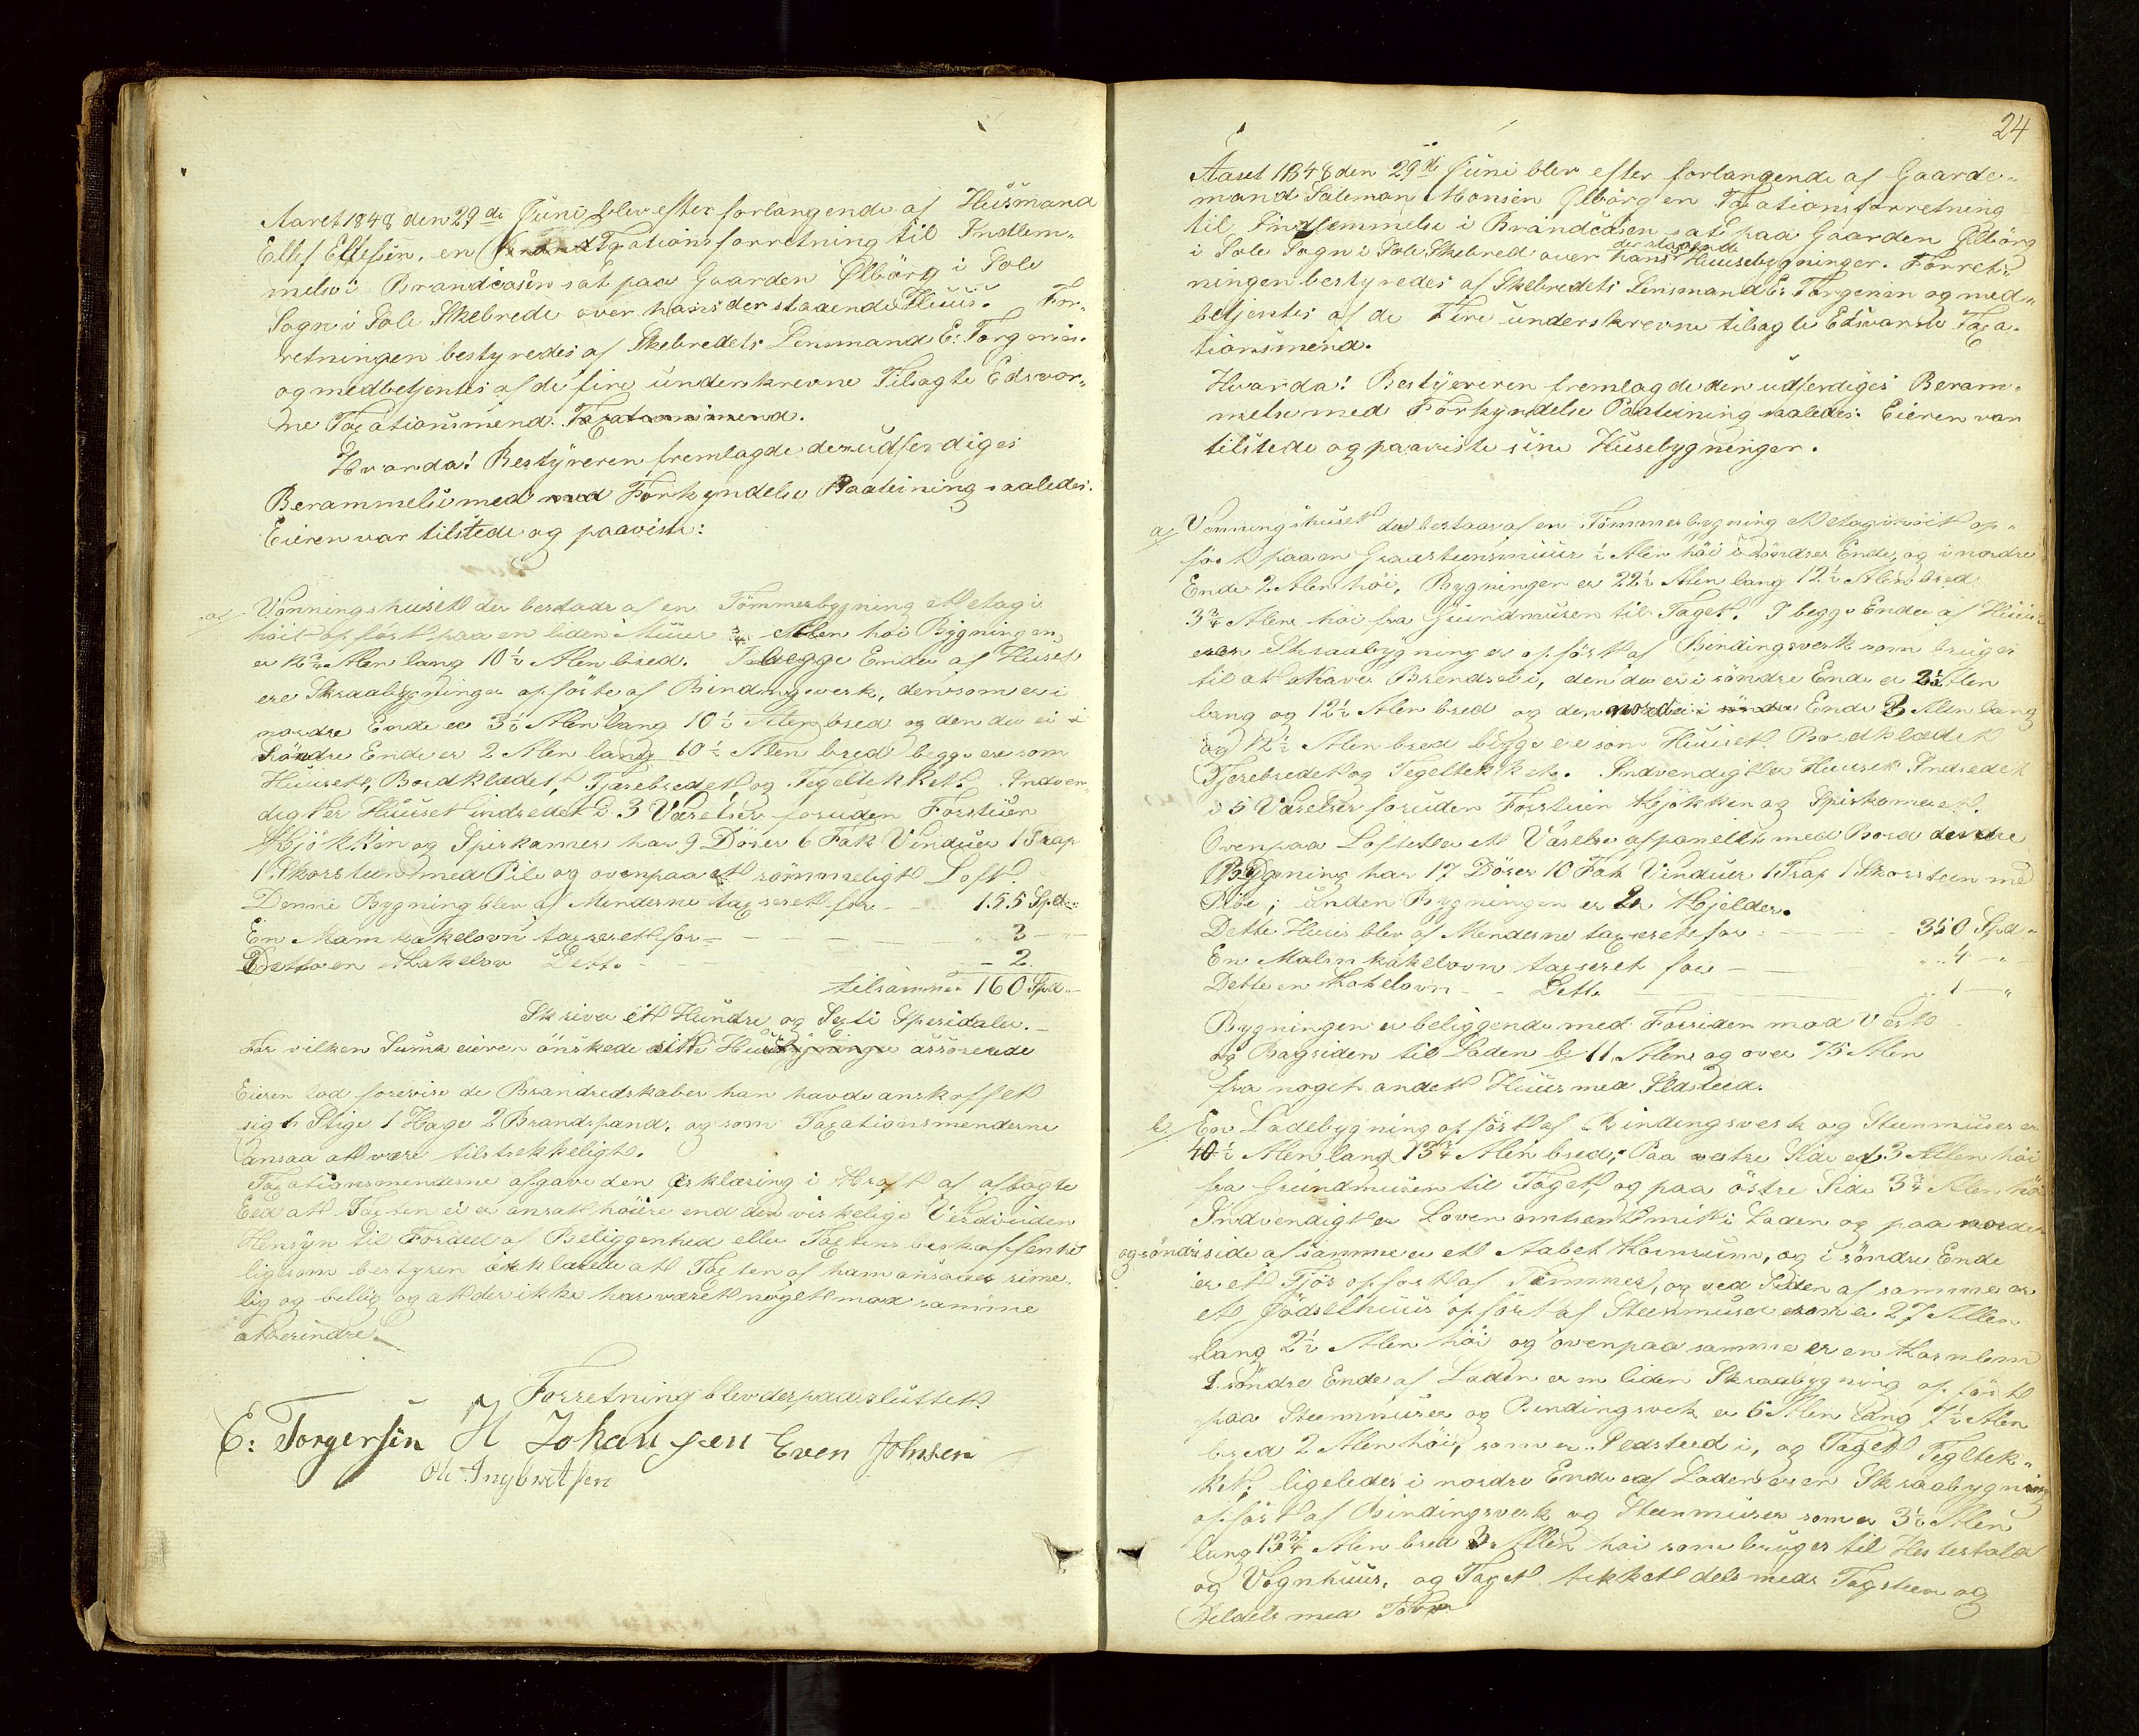 Aaret 1848 den 29de Juni blev efter forlangende af Husmand
Ellef Ellefsen, en Taxationsforretning til Indlem-
melse i Brandcasen sat paa Gaarden Ølbörg i Sole
Sogn i Sole Skebrede over hans der staaende Huus. For-
retningen bestyredes af Skebredets Lensmand E: Torgersen
og medbetjentes af de fire underskrevne Tilsagte Edsvor-
ne Taxationsmend. Taxationsmend.
Hvorda! Bestÿreren fremlagde den udferdiges
Berammelse med med Forkyndelse Paateining saaledes.
Eieren var tilstede og paaviste:
a/ Vonningshuset der bestaar af en Tömmerbygning ett etagi
höit opfört paa en liden Muur 3/4 Alen höi Bygningen
er 12 3/4 Alen lang 10 1/2 Alen bred. I begge Ender af Huset
ere Skraabygninger opförte af Bindingsverk, den som er i
nordre Ende er 3 1/2 Alen lang 10 1/2 Alen bred og den der er i
Söndre Ende er 2 Alen lang 10 1/2 Alen bred begge ere som
Huuset, Bordkledet, Tjærebredet og Tegeltekket. Indven-
digt er Huuset indredet i 3 Værelser foruden Forstuen
Kjökken og Spiskamer har 9 Dörer 6 Fak Vinduer 1 Trap
1 Skorsteen med Pibe og ovenpaa et römmeligt Loft.
Denne Bygning blev af Menderne taxseret for - - 155 Spd
En Mam kakelovn taxseret for - - - „ 3 - „
Detto en Kakelov Detto - - - 2
tilsammen 160 Spd
Skriver ett Hundre og Sexti Spesidaler. -
For vilken Suma eieren önskede sitt Huusbygninger assorerede
Eieren lod forevise de Brandredskaber han havde anskaffet
sig 1 Stige 1 Hage 2 Brandspand. og som Taxationsmenderne
ansaa att være tilstrekkeligt.
Taxationsmenderne afgave den erklæring i Kraft af aflagte
Eed att Taxten ei er ansatt höiere end den virkelige Verdi uden
Hensÿn til Fordeel af Beliggenhed eller Taxtens beskaffenhed
ligesom bestyren erklærede att Taxten af ham ansaaes rime-
lig og billig og att der ikke har været noget mod samme
at erindre.
Forretning blev derpaa sluttet.
E: Torgersen H Johansen Even Johnsen
Ole Ingbretsen
24
Aaret 1848 den 29de Juni blev efter forlangende af Gaarde-
mand Soleman Monsen Ølbörg en Taxationsforretning
til Indlemmelse i Brandcasen sat paa Gaarden Ølbörg
der staaende
i Sole Sogn i Sole Skebred over hans Huusebygninger. Forret-
ningen bestyredes af Skebredets Lensmand E: Torgersen og med-
betjentes af de Fire underskrevne tilsagte Edsvorne Taxa-
tionsmend.
Hvorda! Bestÿreren fremlagde den udferdiges Beram-
melse med Forkyndelse Paateining saaledes: Eieren var
tilstede og paaviste sine Husebygninger.
a/ Vonningshuset der bestaar af en Tömmerbygning et etagi höit op-
fört paa en Graasteensmuur 1/2 Alen höi i söndrer Ende, og i nordre
Ende 2 Alen höi, Bygningen er 22 1/2 Alen lang 12 1/2 Alen bred
3 3/4 Alen höi fra Grundmuren til Taget. I begge Ender af Huuset
eren Skraabygninger opfört af Bindingsverk som bruges
til at have Brendsel i, den der er i söndre Ende er 3 1/2 Alen
lang og 12 1/2 Alen bred og den nordre i söndre Ende 3 Alen lang
og 12 1/2 Alen bred begge ere som Huuset Bordkledet
Tjerebredet og Tegeltekket. Indvendigt er Huuset Indredet
i 5 Værelser foruden Forstuen Kjökken og Spiskameret.
Ovenpaa Loftet er et Værelse afpanelt med Bord
Bygning har 17 Dörer 10 Fak Vinduer 1 Trap 1 Skorsteen med
Pibe; under Bygningen er 2 Kjelder.
Dette Huus blev af Menderne taxseret for - - - 350 Spd
En Malm kakelovn taxseret for - - „ 4 - „
Dette en Kakelovn - - Dette - - 1 - „
Bygningen er beliggende med Forsiden mod Vest
og Bagsiden til Laden 11 Alen og over 75 Alen
fra noget andet Huus med Ildsteed.
b/ En Ladebygning opfört af Bindingsverk og Steenmurer er
40 1/2 Alen lang 13 3/4 Alen bred; Paa vestre Side er 3 Allen höi
fra Grundmuren til Taget, og paa östre Side 3 3/4 Alen höi
Indvendigt er Loven omtrent mitt i Laden og paa norder
og söndre side af samme er ett Aabet Kornrum, og i söndre Ende
er et Fjös opfort af Tömmer, og ved Siden af samme er
et Gödselhuus opfört af Steenmurer som er 27 Allen
lang 2 1/2 Alen höi og ovenpaa samme er en Kornlem
I söndre Ende af Laden er en liden Skraabygning opfört
paa Steenmurer og Bindingsverk er 6 Alen lang 7 1/2 Alen
bred 2 Alen höi, som er Ildsteed i, og Taget Tegltek-
ket. ligeledes i nordre Ende af Laden er en Skraabygning
opfört af Bindingsverk og Steenmurer som er 3 1/2 Alen
lang 13 3/4 Alen bred 3 Allen höi som bruges til Hestestald
og Vognhuus. og Taget tekket dels med Tagsteen og
Deldels med Torv